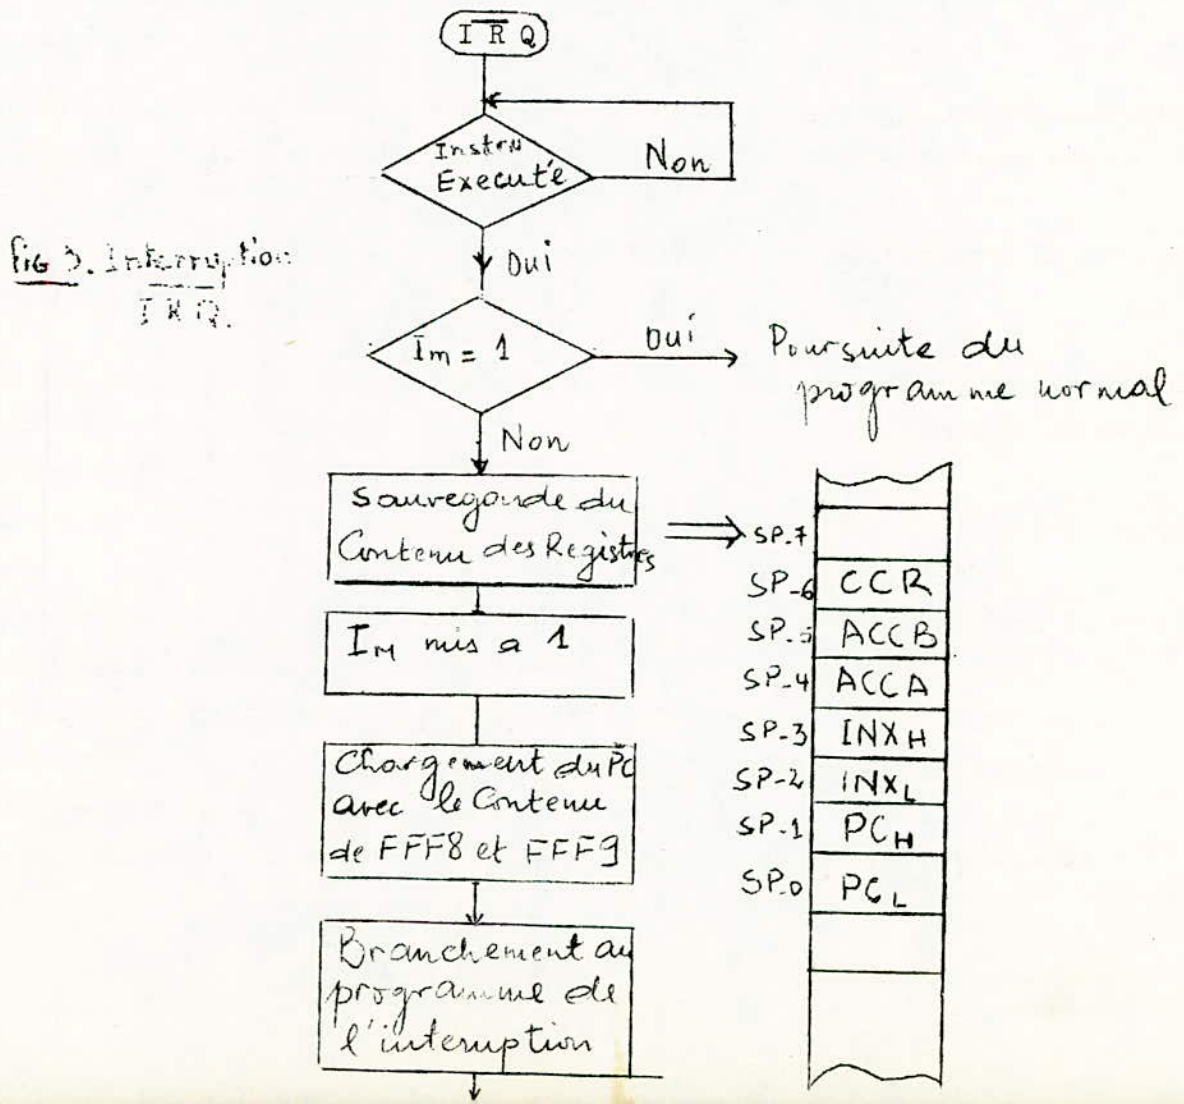 I R Q
Instru
Executé
Non
Oui
Fig 3. Interruption
IRQ.
Im = 1
Oui
Poursuite du
programme normal
Non
Sauvegarde du
Contenu des Registres
IM mis a 1
Chargement du PC
avec le Contenu
de FFF8 et FFF9
Branchement au
programme de
l'interuption
SP-7
SP-6 CCR
SP-5 ACCB
SP-4 ACCA
SP-3 INXH
SP-2 INXL
SP-1 PCH
SP-0 PCL